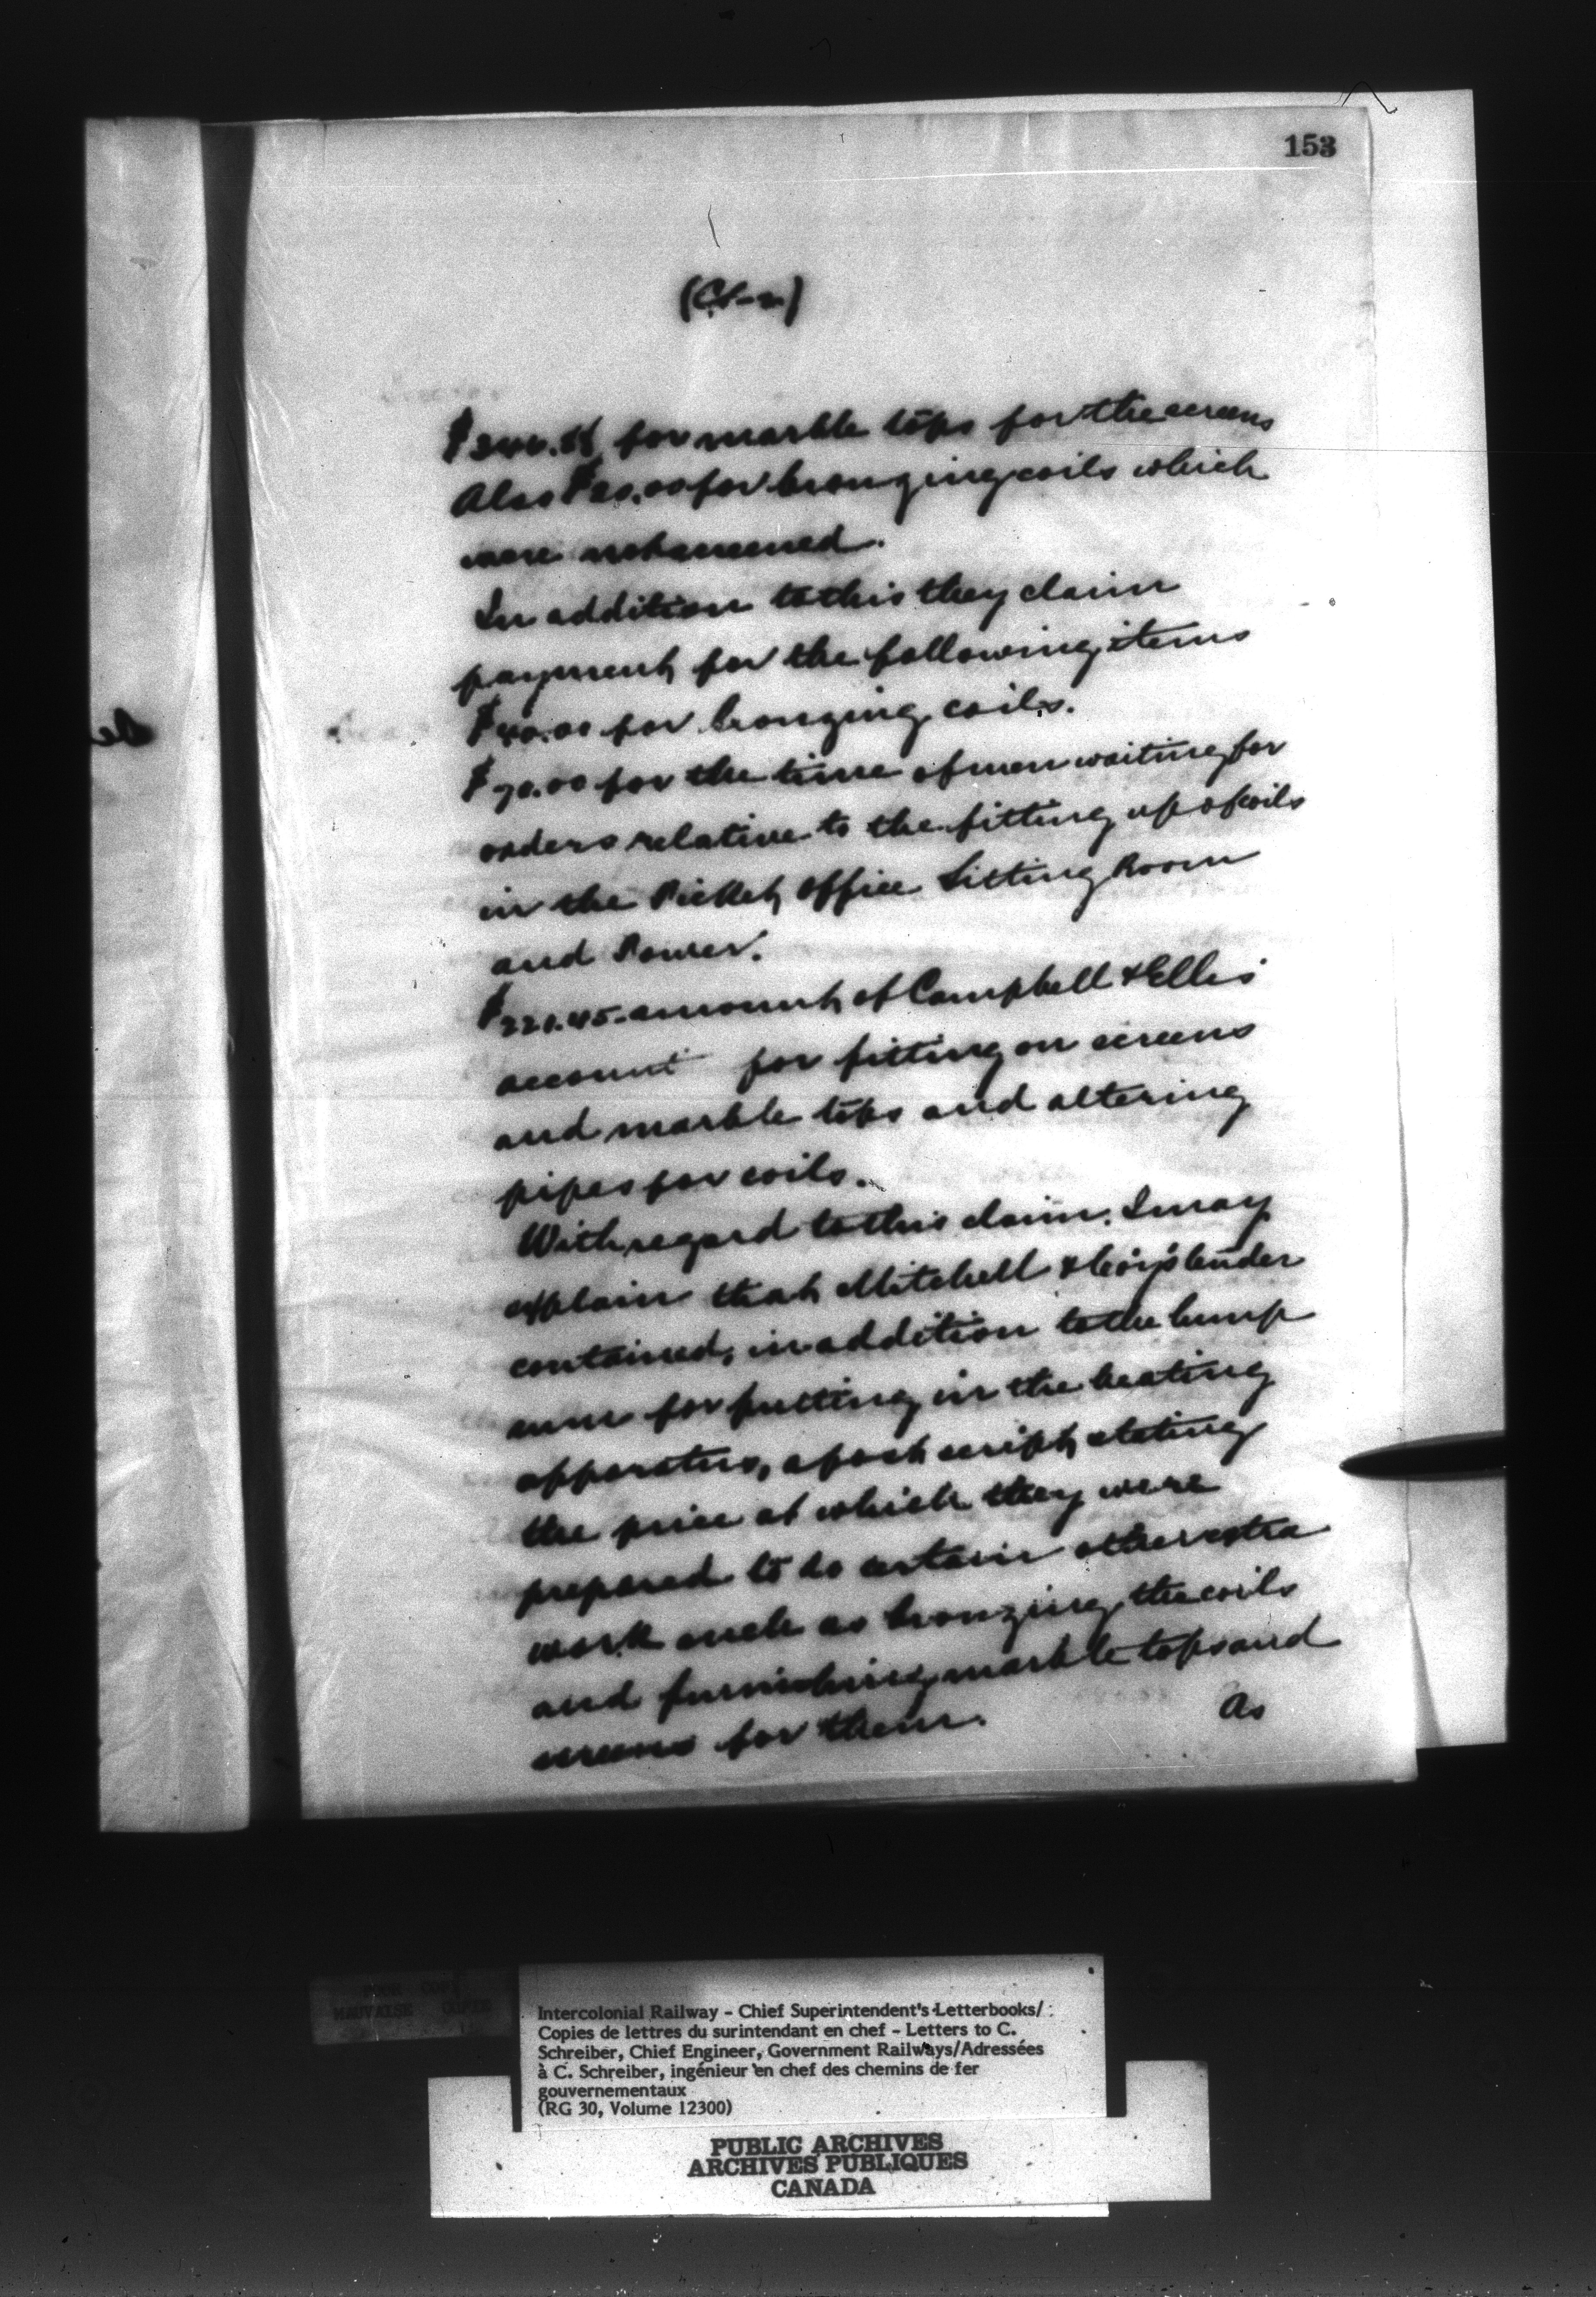 153
for marble tops for the screens
Also $20.00 for bronzing coils which
were not screened.
In addition to this they claim
payment for the following items
$40.00 for bronzing coils.
$70.00 for the time of men waiting for
orders relative to the fitting up of coils
in the Ticket Office Sitting Room
and Tower.
$221.45 amount of Campbell & Ellis
account for fitting on screens
and marble tops and altering
pipes for coils.
With regard to this claim. I may
explain that Mitchell & Coy's tender
contained, in addition to the lump
sum for putting in the heating
apparatus, a post script stating
the price at which they were
prepared to do certain other extra
work such as bronzing the coils
and furnishing marble tops and
screens for them.
As
POOR COPY
MAUVAISE COPIE
Intercolonial Railway - Chief Superintendent's Letterbooks/
Copies de lettres du surintendant en chef - Letters to C.
Schreiber, Chief Engineer, Government Railways/Adressées
à C. Schreiber, ingénieur en chef des chemins de fer
gouvernementaux
(RG 30, Volume 12300)
PUBLIC ARCHIVES
ARCHIVES PUBLIQUES
CANADA